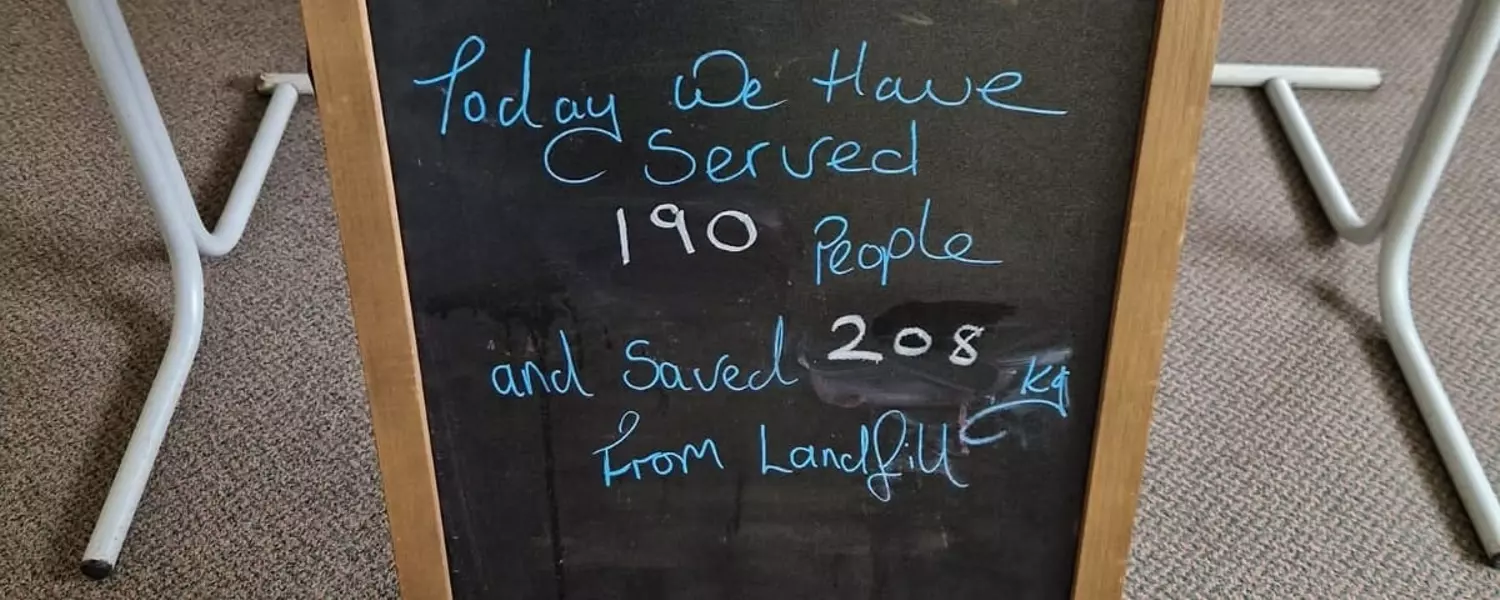 Today We Have
Served
190 People
and Saved 208 kg
From Landfill